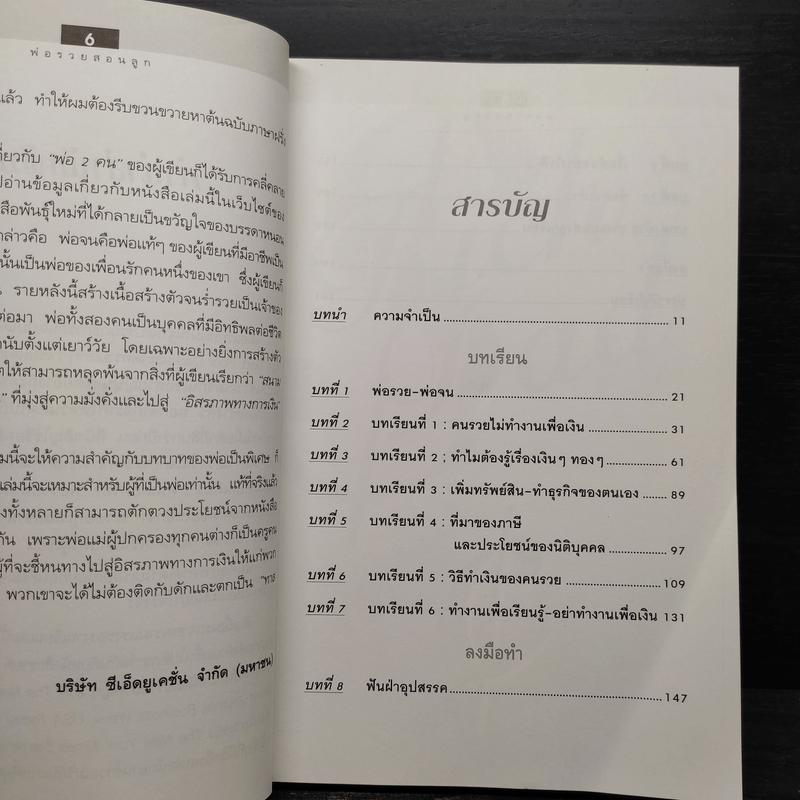 6
พ่อรวยสอนลูก
แล้ว ทำให้ผมต้องรีบขวนขวายหาต้นฉบับภาษาฝรั่ง
กี่ยวกับ “พ่อ 2 คน” ของผู้เขียนก็ได้รับการคลี่คลาย
ปอ่านข้อมูลเกี่ยวกับหนังสือเล่มนี้ในเว็บไซต์ของ
สือพันธุ์ใหม่ที่ได้กลายเป็นขวัญใจของบรรดาหนอน
กล่าวคือ พ่อจนคือพ่อแท้ๆ ของผู้เขียนที่มีอาชีพเป็น
นั้นเป็นพ่อของเพื่อนรักคนหนึ่งของเขา ซึ่งผู้เขียนก็
รายหลังนี้สร้างเนื้อสร้างตัวจนร่ำรวยเป็นเจ้าของ
ต่อมา พ่อทั้งสองคนเป็นบุคคลที่มีอิทธิพลต่อชีวิต
นับตั้งแต่เยาว์วัย โดยเฉพาะอย่างยิ่งการสร้างตัว
ตให้สามารถหลุดพ้นจากสิ่งที่ผู้เขียนเรียกว่า “สนาม
” ที่มุ่งสู่ความมั่งคั่งและไปสู่ “อิสรภาพทางการเงิน”
มนี้จะให้ความสำคัญกับบทบาทของพ่อเป็นพิเศษ ก็
เล่มนี้จะเหมาะสำหรับผู้ที่เป็นพ่อเท่านั้น แท้ที่จริงแล้ว
งทั้งหลายก็สามารถตักตวงประโยชน์จากหนังสือ
กัน เพราะพ่อแม่ผู้ปกครองทุกคนต่างก็เป็นครูคน
ผู้ที่จะชี้หนทางไปสู่อิสรภาพทางการเงินให้แก่พวก
พวกเขาจะได้ไม่ต้องติดกับดักและตกเป็น “ทาส
บริษัท ซีเอ็ดยูเคชั่น จำกัด (มหาชน)
สารบัญ
บทนำ ความจำเป็น 11
บทเรียน
บทที่ 1 พ่อรวย-พ่อจน 21
บทที่ 2 บทเรียนที่ 1 : คนรวยไม่ทำงานเพื่อเงิน 31
บทที่ 3 บทเรียนที่ 2 : ทำไมต้องรู้เรื่องเงินๆ ทองๆ 61
บทที่ 4 บทเรียนที่ 3 : เพิ่มทรัพย์สิน-ทำธุรกิจของตนเอง 89
บทที่ 5 บทเรียนที่ 4 : ที่มาของภาษี
และประโยชน์ของนิติบุคคล 97
บทที่ 6 บทเรียนที่ 5 : วิธีทำเงินของคนรวย 109
บทที่ 7 บทเรียนที่ 6 : ทำงานเพื่อเรียนรู้-อย่าทำงานเพื่อเงิน 131
ลงมือทำ
บทที่ 8 ฟันฝ่าอุปสรรค 147